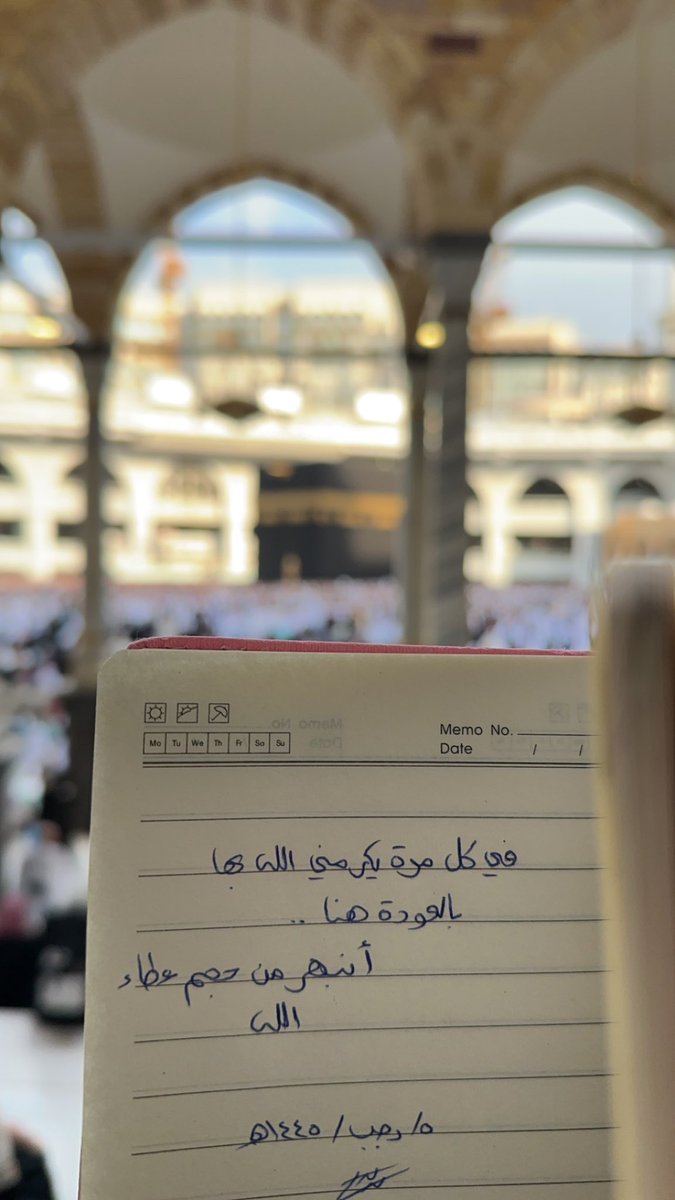 Memo No.
Date / /
Mo Tu We Th Fr Sa Su
في كل مرة يكرمني الله بها
بالعودة هنا ..
أنبهر من حجم عطاء
الله
٥/رجب/١٤٤٥هـ